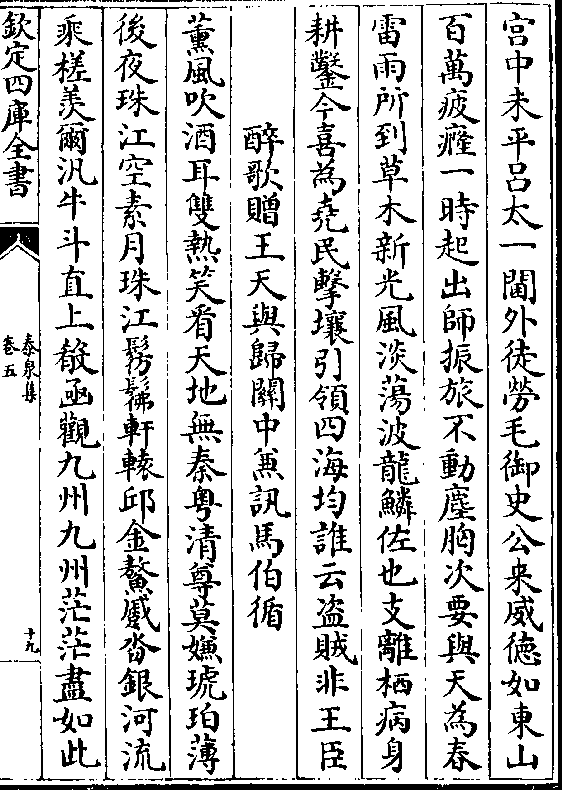 宮中未平呂太一閫外徒勞毛御史公來威德如東山
百萬疲癃一時起出師振旅不動塵胸次要與天為春
雷雨所到草木新光風淡蕩波龍鱗佐也支離栖病身
耕鑿今喜為堯民擊壤引領四海均誰云盜賊非王臣
醉歌贈王天與歸關中兼訊馬伯循
薰風吹酒耳雙熱笑看天地無秦粤清尊莫嫌琥珀薄
後夜珠江空素月珠江髣髴軒轅邱金鰲蹙沓銀河流
乘槎羨爾汎牛斗直上嶅函觀九州九州茫茫盡如此
欽定四庫全書
泰泉集
卷五
十九